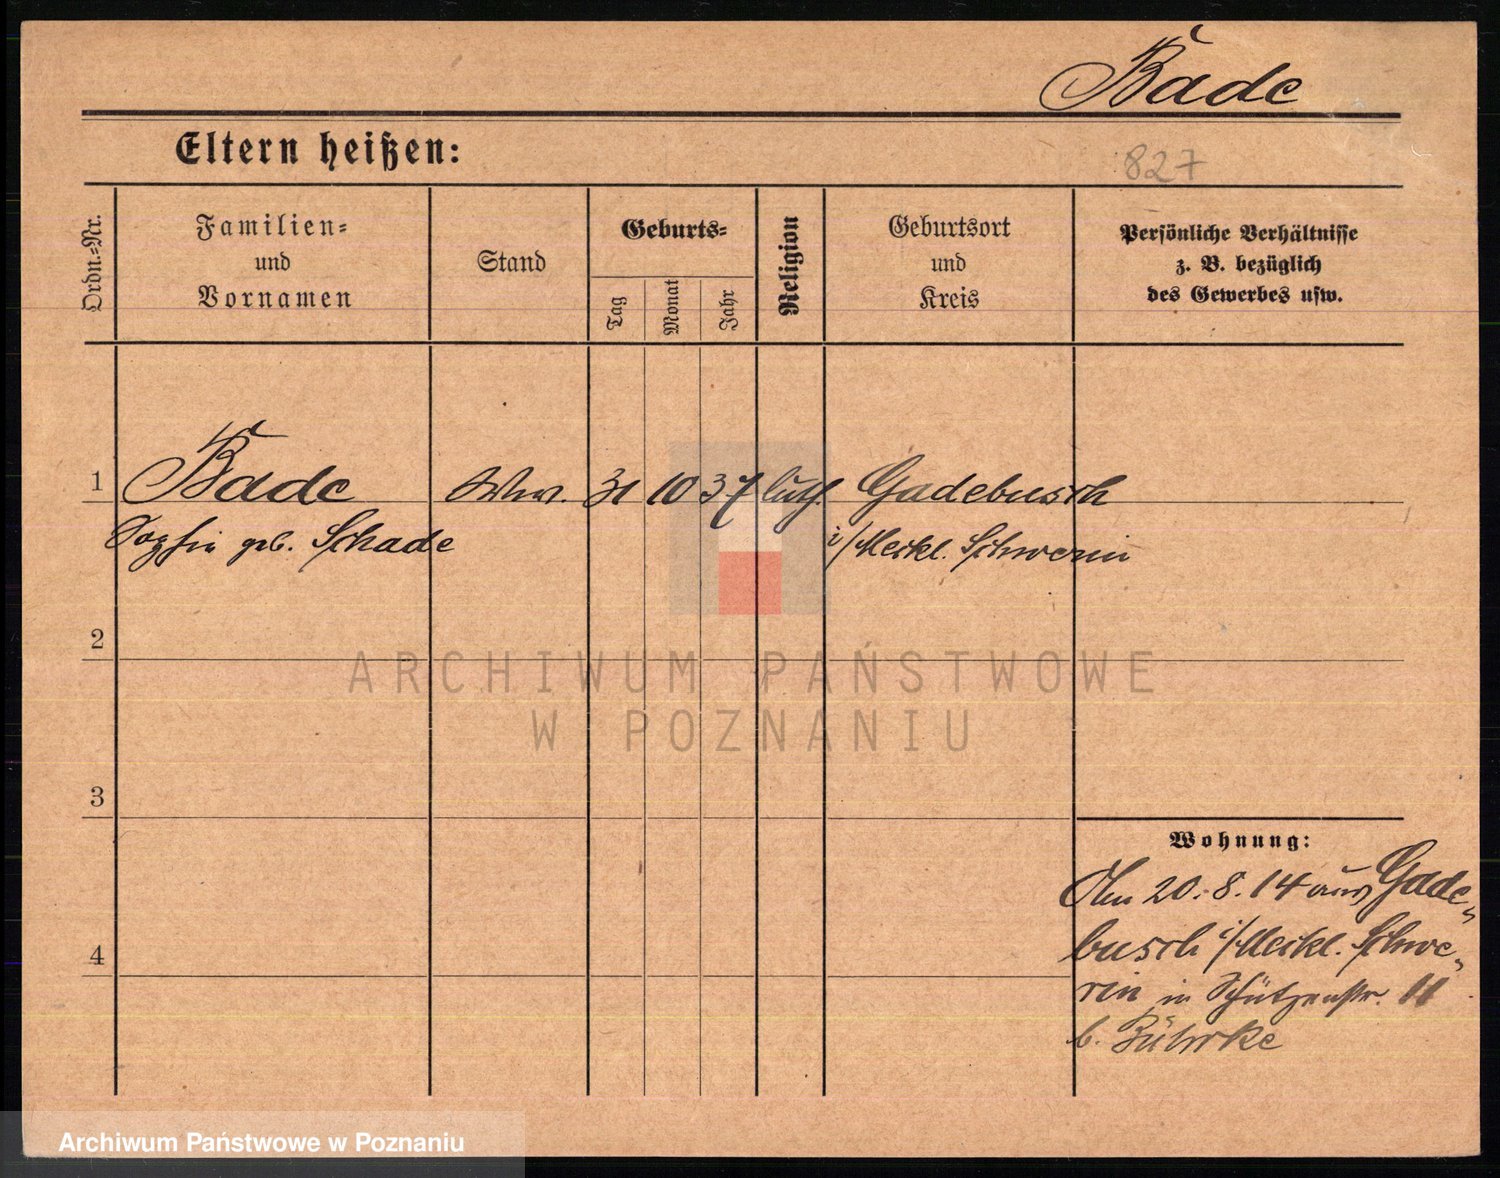 Bade
Eltern heißen:
827
Ordn.-Nr.
Familien-
und
Vornamen
Stand
Geburts-
Tag
Monat
Jahr
Religion
Geburtsort
und
Kreis
Persönliche Verhältnisse
z. B. bezüglich
des Gewerbes usw.
1
Bade
Ww.
31
10
37
luth.
Gadebusch
Sophie geb. Schade
i/Meckl. Schwerin
2
ARCHIWUM PAŃSTWOWE
W POZNANIU
3
Wohnung:
Am 20.8.14 aus Gade-
busch i/Meckl. Schwe-
4
rin in Schützenstr. 11
b.
Archiwum Państwowe w Poznaniu